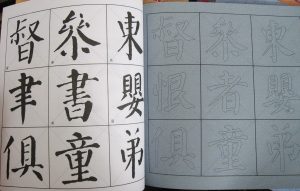 東嬰弟
叅書童
督聿俱
東嬰弟
叅者童
督恨俱